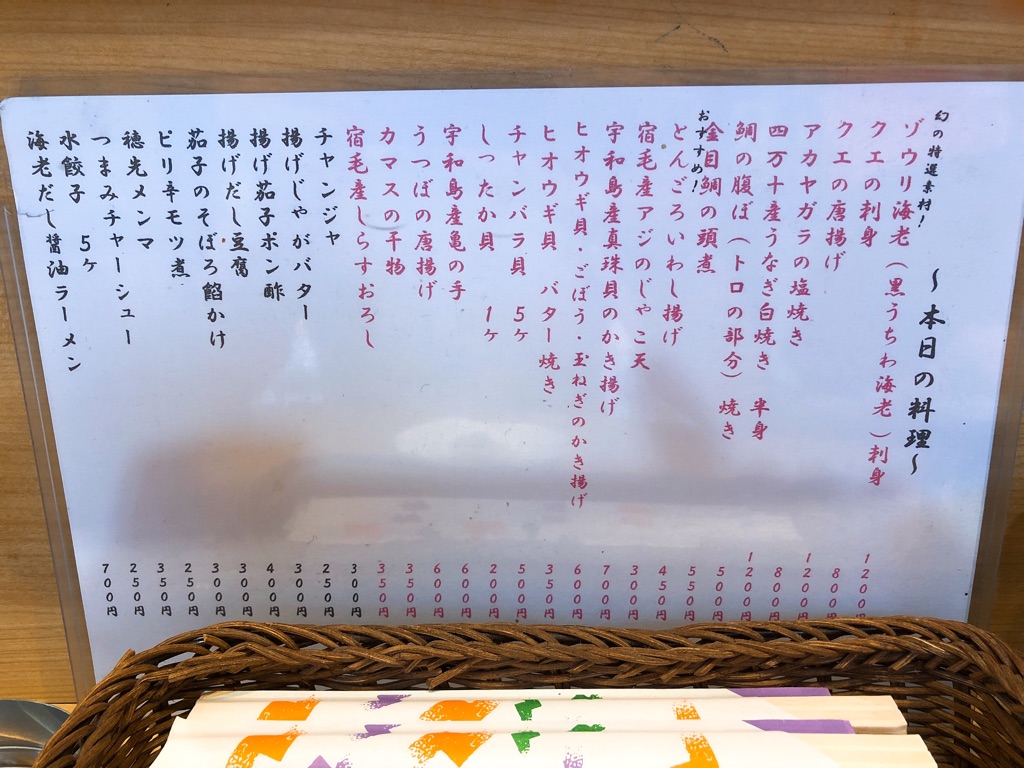 幻の特選素材!
～本日の料理～
ゾウリ海老(黒うちわ海老)刺身 1200円
クエの刺身 800円
クエの唐揚げ 1200円
アカヤガラの塩焼き 800円
四万十産うなぎ白焼き 半身 1200円
鯛の腹ぼ(トロの部分)焼き 500円
おすすめ!
金目鯛の頭煮 550円
とんごろいわし揚げ 450円
宿毛産アジのじゃこ天 300円
宇和島産真珠貝のかき揚げ 700円
ヒオウギ貝・ごぼう・玉ねぎのかき揚げ 600円
ヒオウギ貝 バター焼き 350円
チャンバラ貝 5ヶ 500円
しったか貝 1ヶ 200円
宇和島産亀の手 600円
うつぼの唐揚げ 600円
カマスの干物 350円
宿毛産しらすおろし 350円
チャンジャ 300円
揚げじゃがバター 250円
揚げ茄子ポン酢 300円
揚げだし豆腐 400円
茄子のそぼろ餡かけ 300円
ピリ辛モツ煮 300円
穂先メンマ 250円
つまみチャーシュー 350円
水餃子 5ヶ 250円
海老だし醤油ラーメン 700円